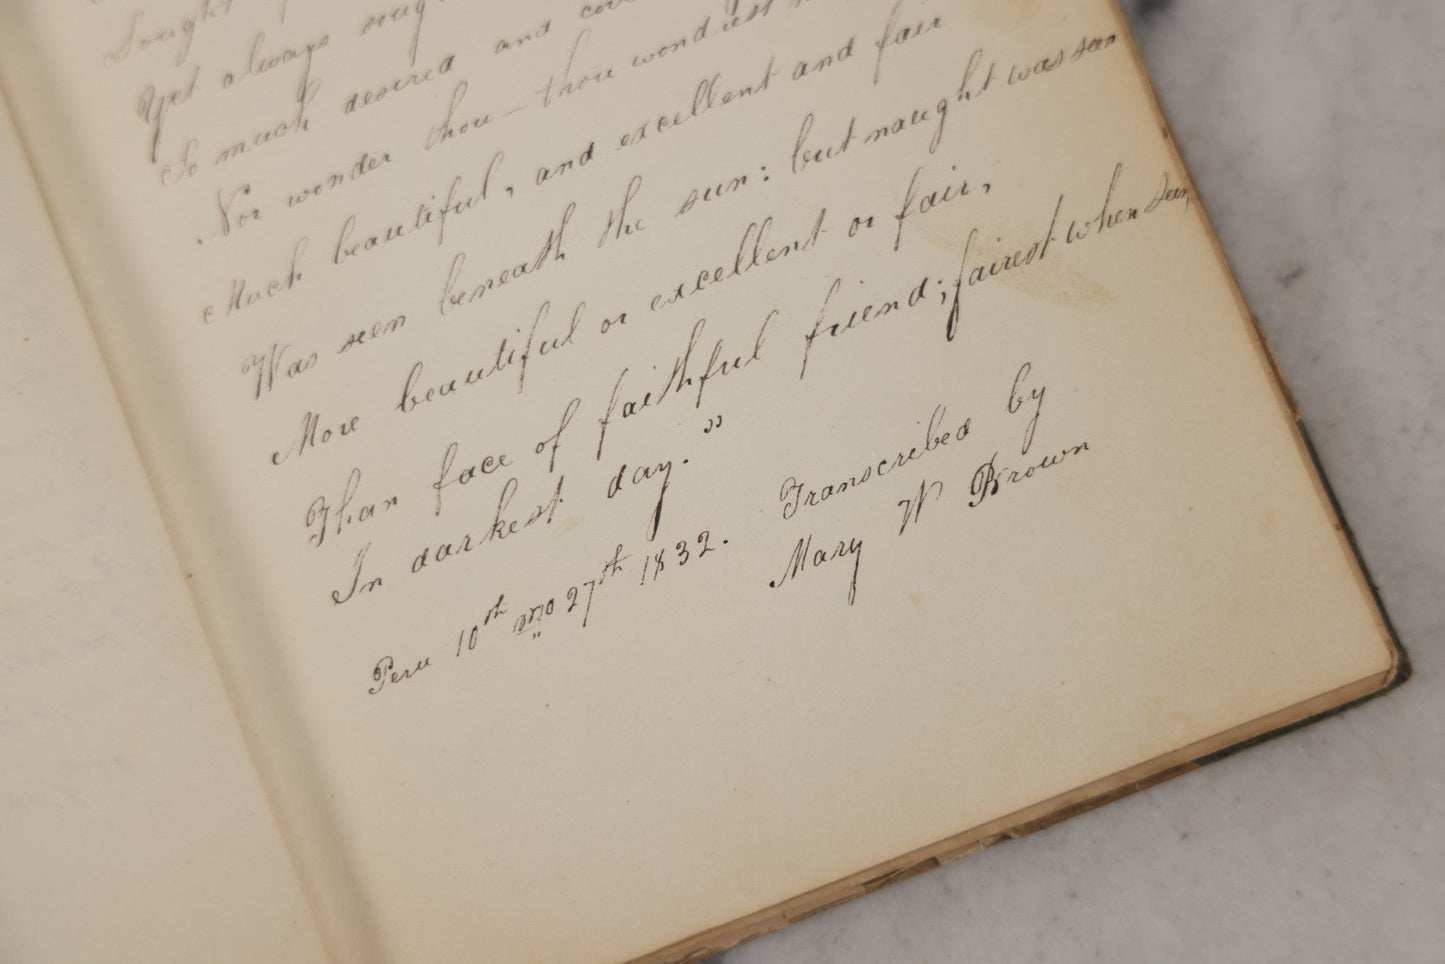 Sought
Yet always
So much desired and
Nor wonder thou — thou wondrest
Much beautiful, and excellent and fair
Was seen beneath the sun: but naught was seen
More beautiful or excellent or fair,
Than face of faithful friend; fairest when seen
In darkest day."
Peru 10th mo 27th 1832. Transcribed by
Mary W Brown